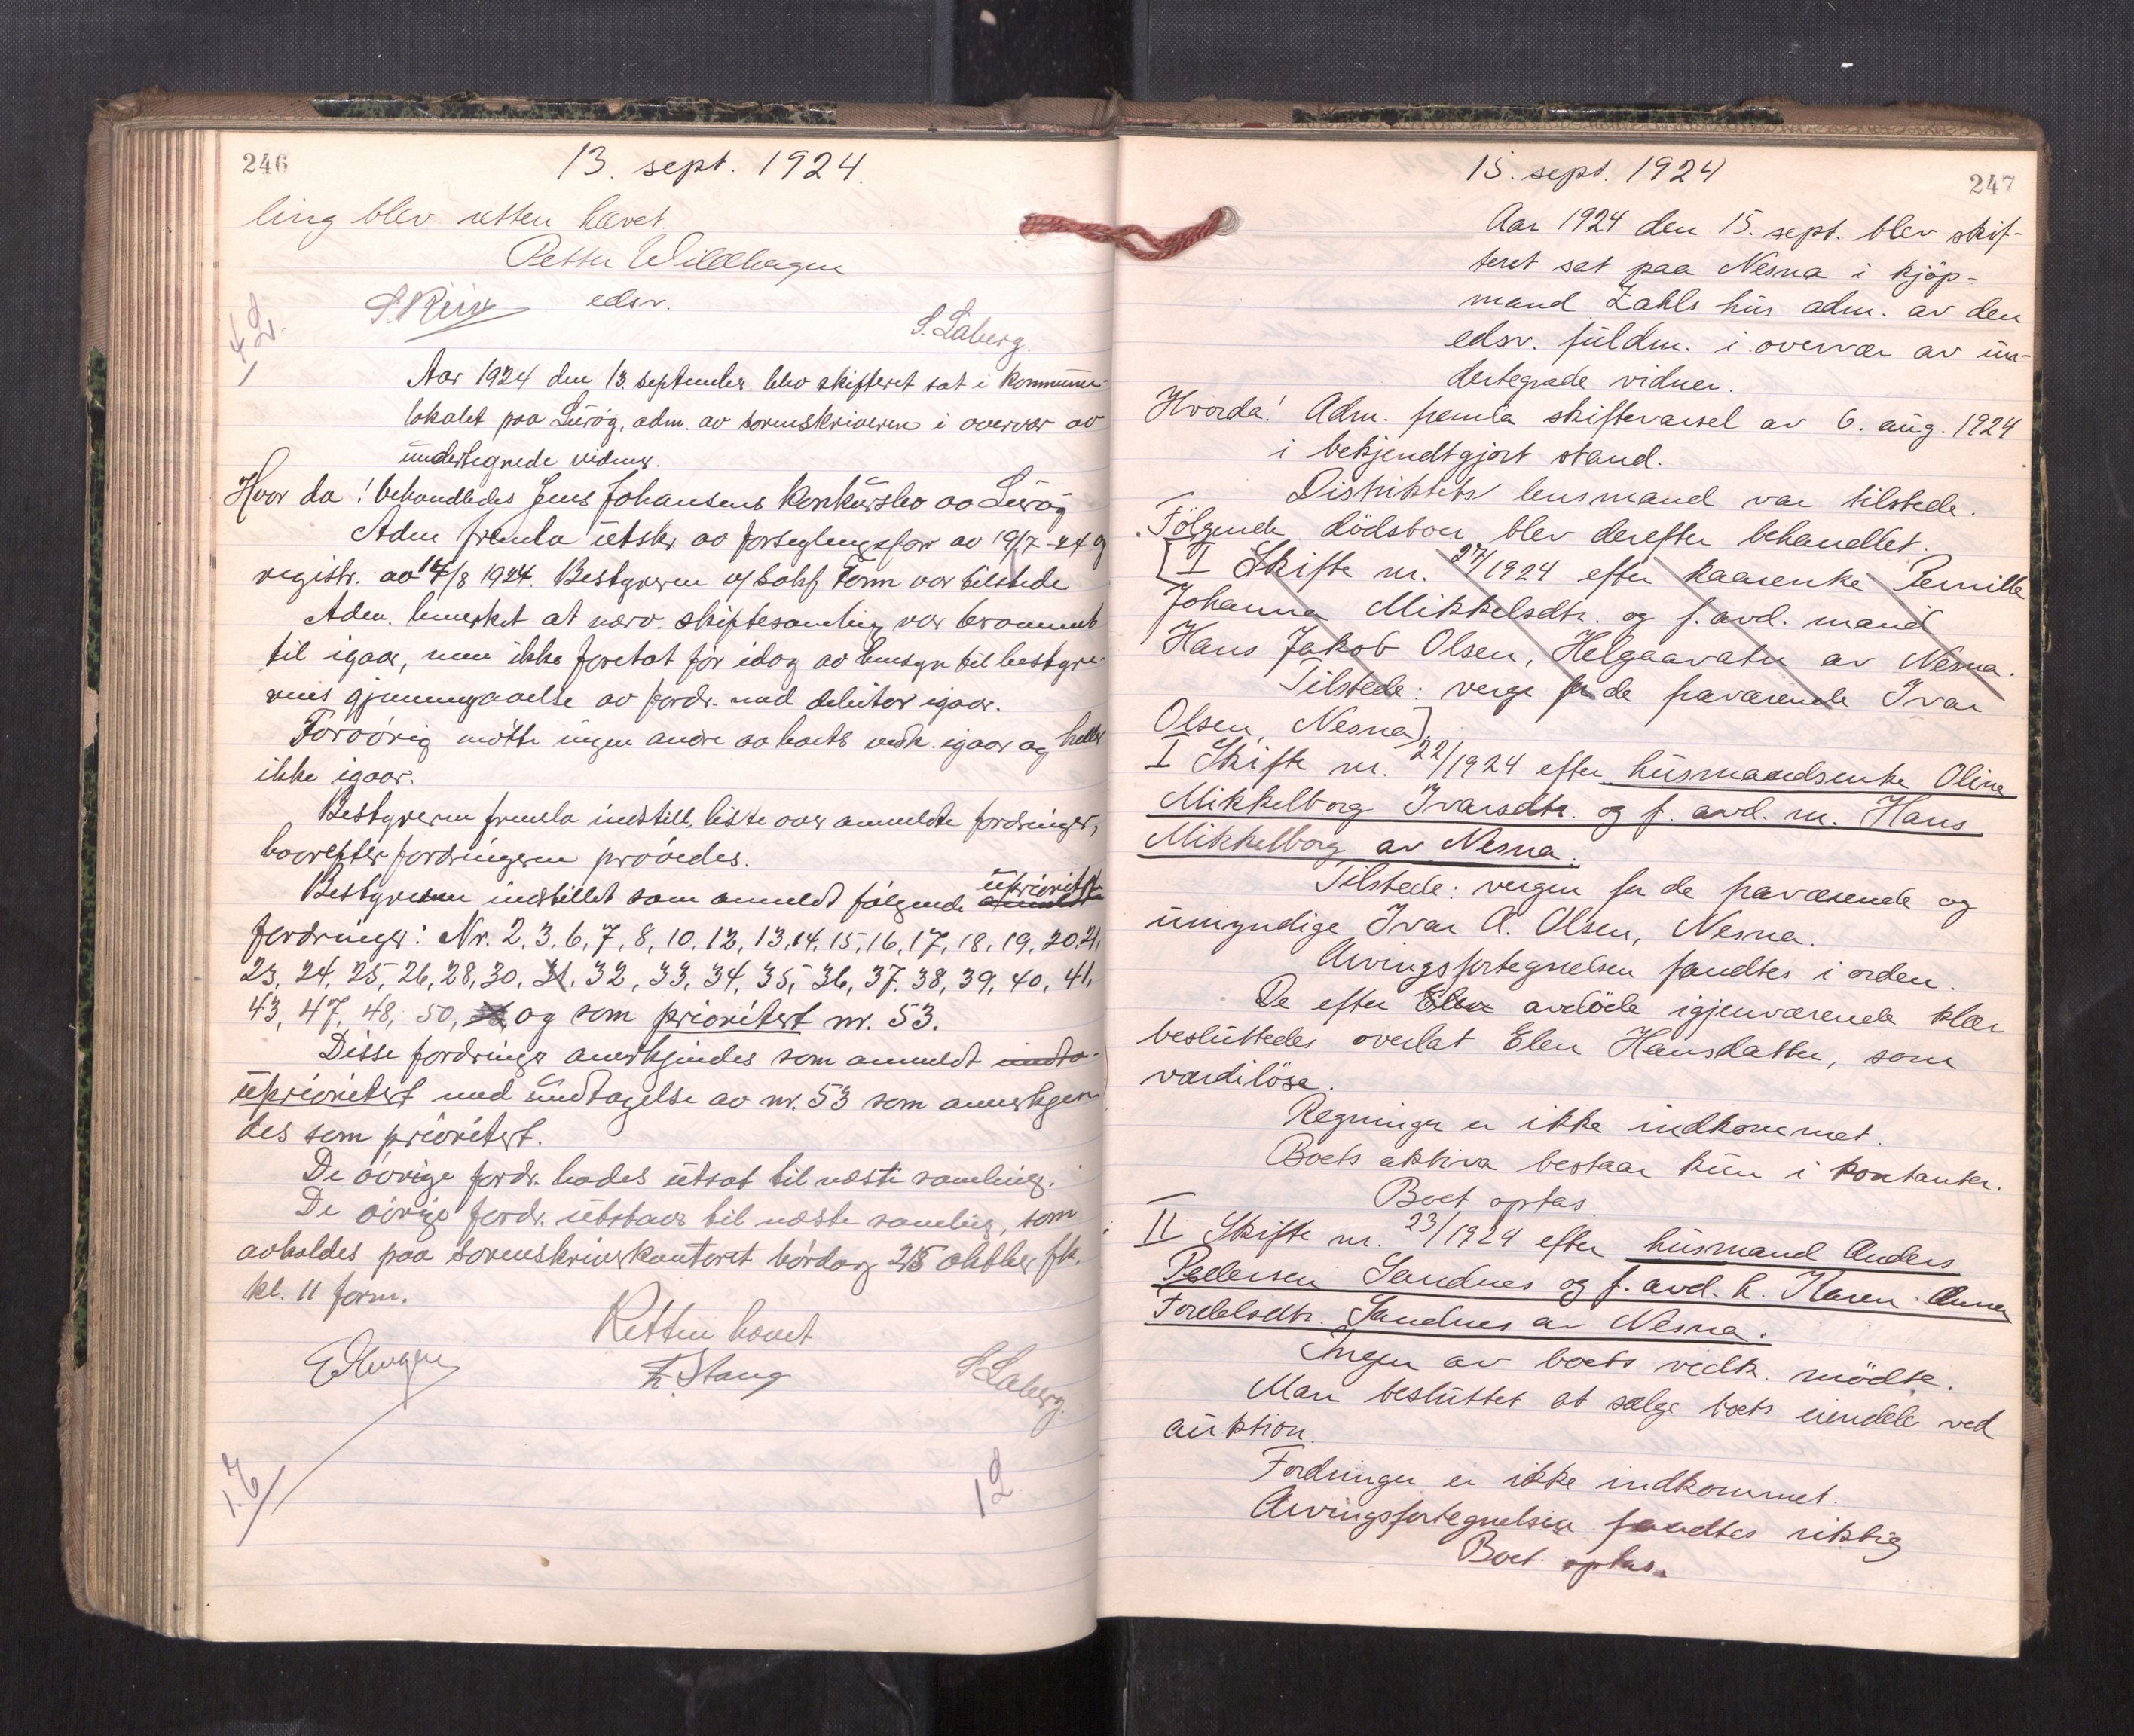 246
13. sept. 1924.
ling blev retten hævet.
Petter Willehagen
edsv.
S. Laberg.
Aar 1924 den 13 september blev skifteret sat i kommune-
lokalet paa Lurøy, adm. av sorenskriveren i overvær av
undertegnede vidner.
Hvor da! behandledes Jens Johansens konkursbo av Lurøy
Adm fremla utskr av forseglingsforr av 19/7-24 og
registr. av 14/8 1924. Bestyreren o/s Tønn var tilstede
Adm. bemerket at nærv. skiftesamling var berammet
til igaar, men ikke foretat før idag av hensyn til bestyre-
rens gjennemgaaelse av fordr. med debitor igaar.
Forøvrig møtte ingen andre av boets vedk. igaar og heller
ikke igaar.
Bestyreren fremla indstill. liste over anmeldte fordringer,
hvorefter fordringerne prøvedes.
Bestyreren indstillet som anmeldt følgende uprioriterte
fordringer: Nr. 2, 3, 6, 7, 8, 10, 12, 13, 14, 15, 16, 17, 18, 19, 20, 21,
23, 24, 25, 26, 28, 30, 31, 32, 33, 34, 35, 36, 37, 38, 39, 40, 41,
43, 47, 48, 50, og som prioritert nr. 53.
Disse fordringer anerkjendes som anmeldt
uprioritert med undtagelse av nr. 53 som anerkjen-
des som prioritert.
De øvrige fordr. hades utsat til næste samling.
De øvrige fordr. utstaar til næste samling, som
avholdes paa sorenskriverkontoret lørdag 25 oktober fk.
kl. 11 form.
Retten hævet
F. Stang
S Laberg.
12
15. sept. 1924
247
Aar 1924 den 15. sept. blev skif-
teret sat paa Nesna i kjøp-
mand Zahls hus adm. av den
edsv. fuldm. i overvær av un-
dertegnede vidner.
Hvorda! Adm. fremla skiftevarsel av 6. aug. 1924
i bekjendtgjort stand.
Distriktets lensmand var tilstede.
Følgende dødsboer blev derefter behandlet.
[I Skifte nr. 27/1924 efter kaarenke Pernille
Johanna Mikkelsdtr. og f. avd. mand
Hans Jakob Olsen, Helgaavatn av Nesna.
Tilstede: verge for de fraværende Ivar
Olsen, Nesna].
I Skifte nr. 22/1924 efter husmandsenke Oline
Mikkelborg Ivarsdtr. og f. avd. m. Hans
Mikkelborg av Nesna.
Tilstede: vergen for de fraværende og
umyndige Ivar A. Olsen, Nesna.
Arvingsfortegnelsen fandtes i orden.
De efter Elen avdøde igjenværende klær
besluttedes overlat Elen Hansdatter, som
værdiløse.
Regninger er ikke indkommet.
Boets aktiva bestaar kun i kontanter.
Boet optas.
II Skifte nr. 23/1924 efter husmand Anders
Pedersen Sandnes og f. avd. h. Karen Anna
Tordelsdtr. Sandnes av Nesna.
Ingen av boets vedk. mødte.
Man besluttet at sælge boets eiendele ved
auktion.
Fordringer er ikke indkommet.
Arvingsfortegnelsen fandtes riktig
Boet optas.